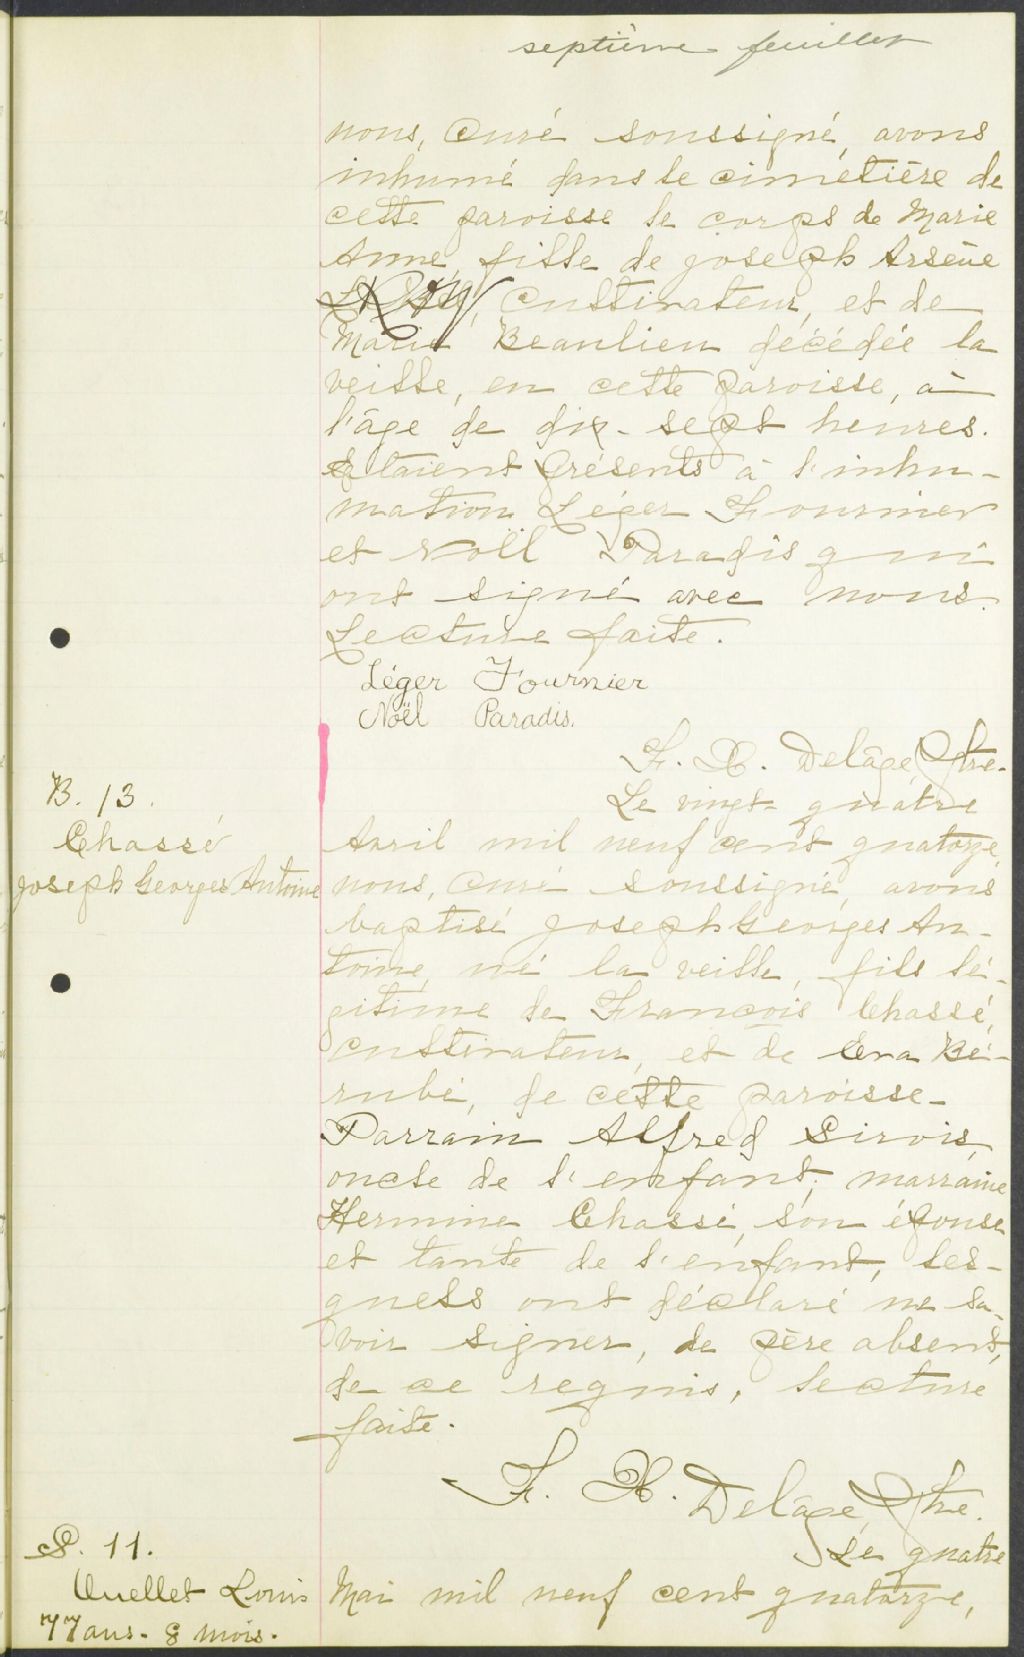 septième feuillet
nous, Curé soussigné, avons
inhumé dans le cimetière de
cette paroisse le corps de Marie
Anne, fille de Joseph Arsène
Roy, Cultivateur, et de
Marie Beaulieu décédée la
veille, en cette paroisse, à
l'âge de dix-sept heures.
Etaient présents à l'inhu-
mation Léger Fournier
et Noël Paradis qui
ont signé avec nous.
Lecture faite.
Léger Fournier
Noël Paradis.
F. X. Delâge, Ptre.
B. 13.
Chassé
Joseph Georges Antoine
Le vingt-quatre
Avril mil neuf cent quatorze,
nous, Curé soussigné, avons
baptisé Joseph Georges An-
toine, né la veille, fils lé-
gitime de François Chassé,
Cultivateur, et de Eva Bé-
rubé, de cette paroisse-
Parrain Alfred Sirois,
oncle de l'enfant; marraine
Hermine Chassé, son épouse
et tante de l'enfant, les-
quels ont déclaré ne sa-
voir signer, de père absent,
de ce requis, lecture
faite.
F. X. Delâge, Ptre.
S. 11.
Ouellet Louis
77 ans. 8 mois.
Le quatre
Mai mil neuf cent quatorze,